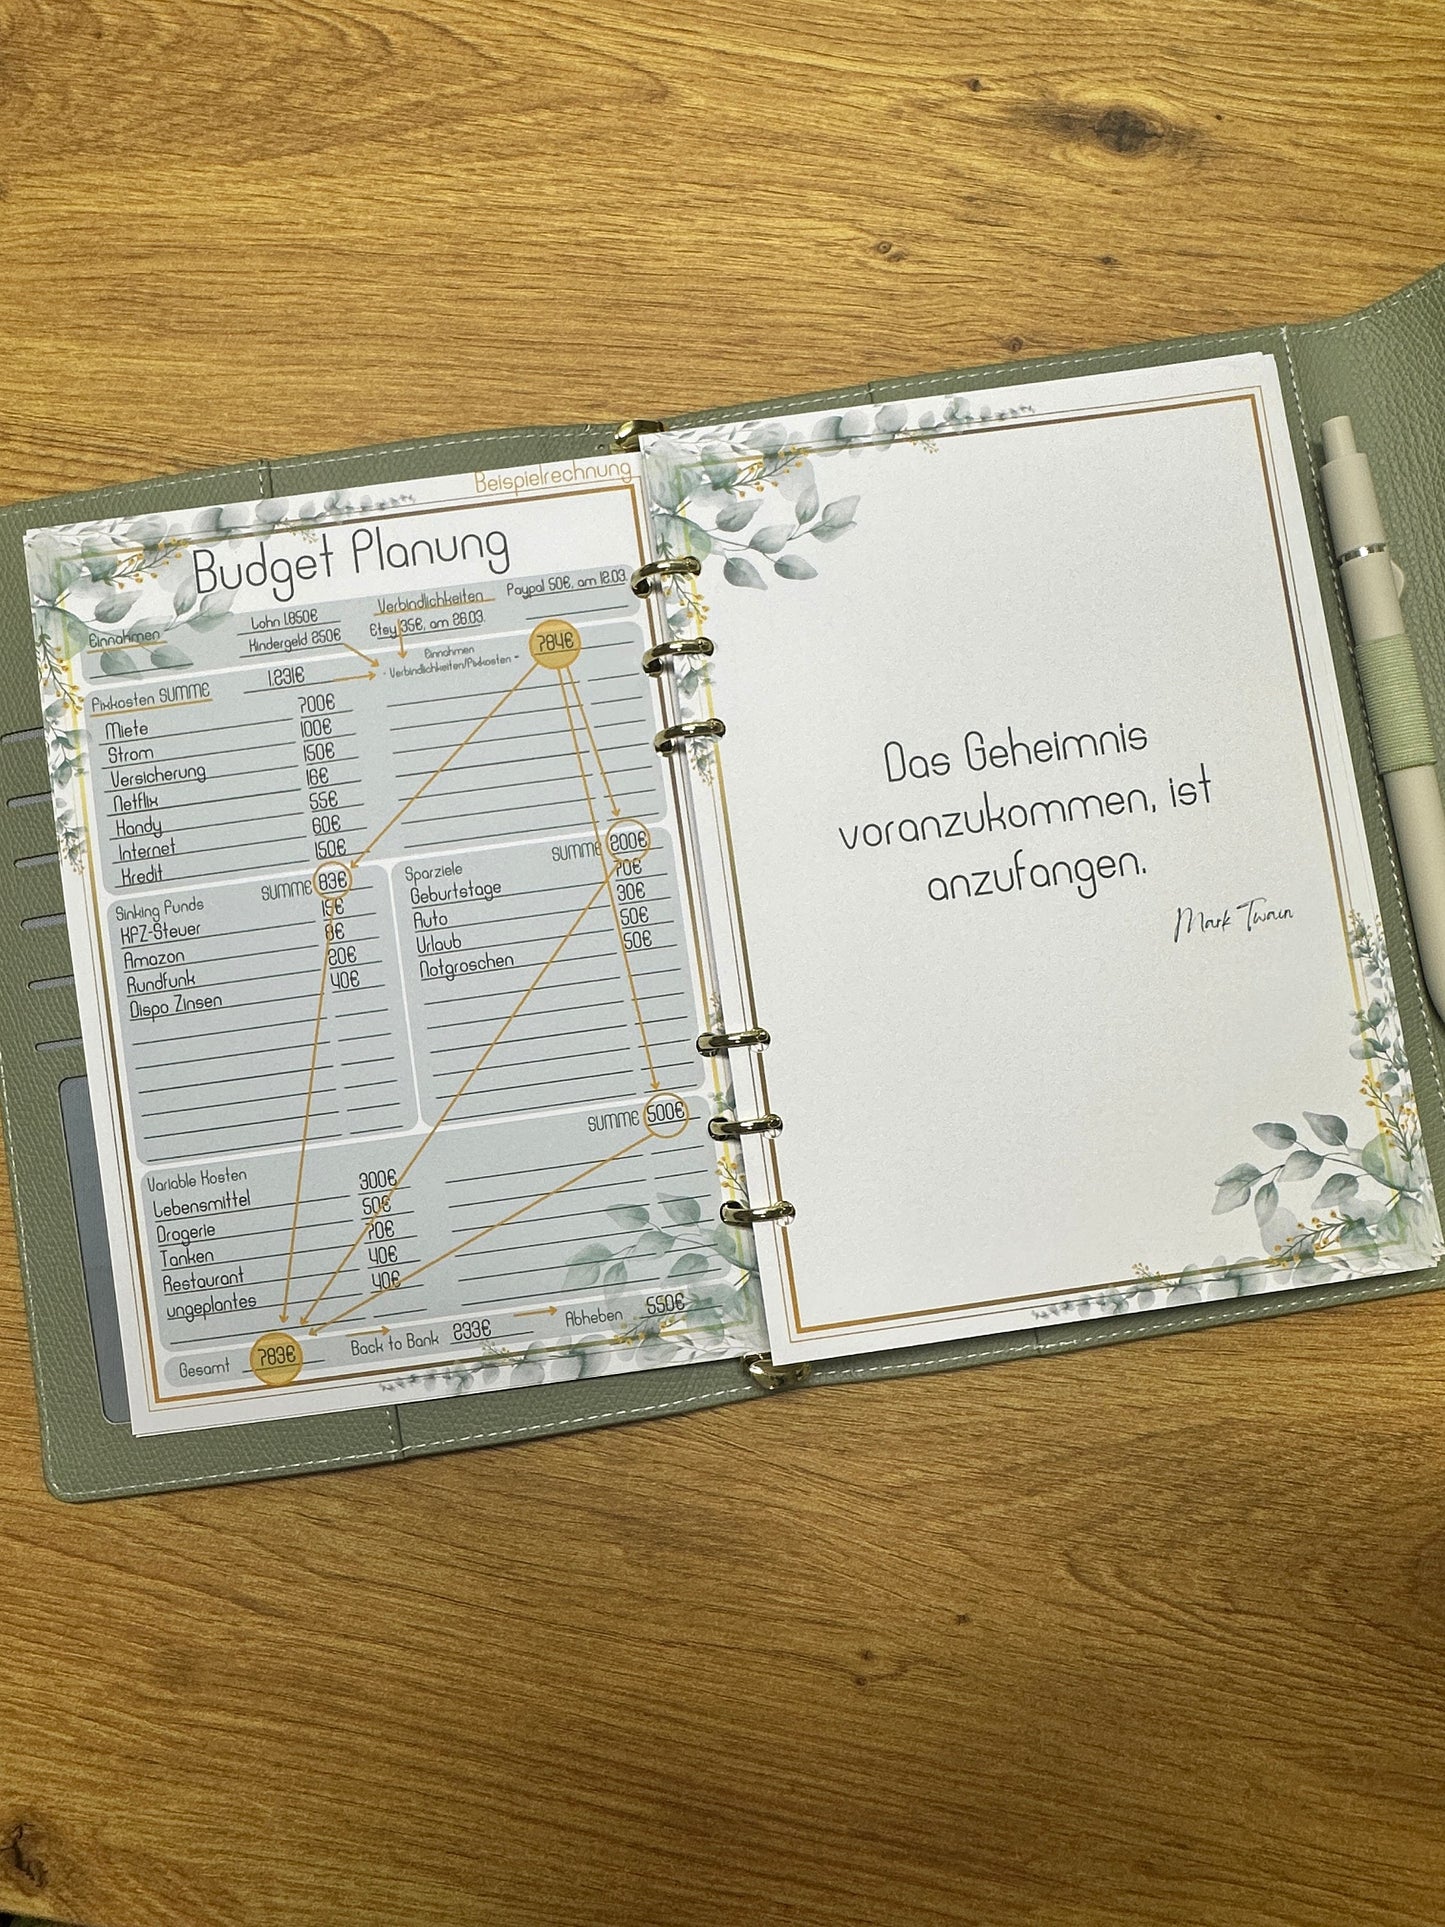 Beispielrechnung
Budget Planung
Einnahmen
Lohn 1.850€
Kindergeld 250€
Verbindlichkeiten
Etsy 35€, am 28.03.
Paypal 50€, am 12.03.
Fixkosten SUMME 1.231€
Einnahmen
- Verbindlichkeiten/Fixkosten = 784€
Miete 700€
Strom 100€
Versicherung 150€
Netflix 16€
Handy 55€
Internet 60€
Kredit 150€
Sinking Funds SUMME 83€
KFZ-Steuer 15€
Amazon 8€
Rundfunk 20€
Dispo Zinsen 40€
Sparziele SUMME 200€
Geburtstage 70€
Auto 30€
Urlaub 50€
Notgroschen 50€
Variable Kosten SUMME 500€
Lebensmittel 300€
Drogerie 50€
Tanken 70€
Restaurant 40€
ungeplantes 40€
Gesamt 783€ Back to Bank 233€ Abheben 550€
Das Geheimnis
voranzukommen, ist
anzufangen.
Mark Twain